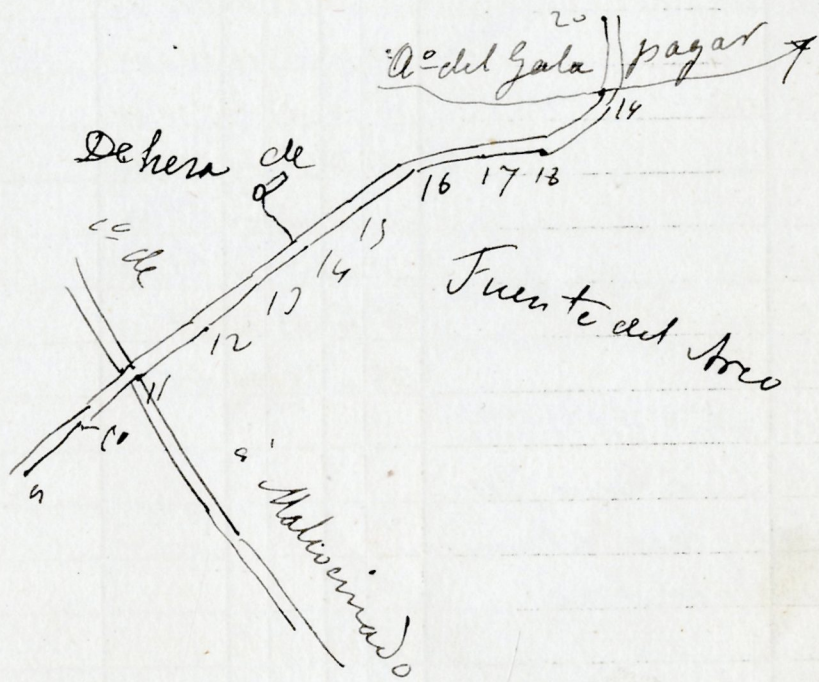 20
Aº del Gala pagar
19
Dehesa de
16 17 18
15
14
13
12
11
10
cº de
Fuente del Arco
a Malcocinado